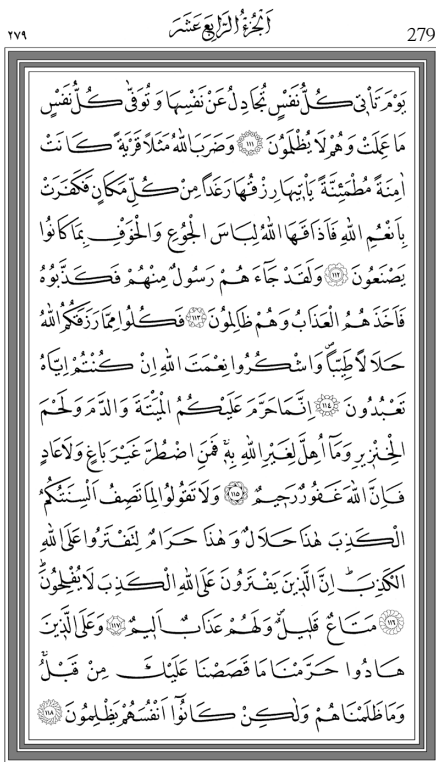 ٢٧٩ اَلْجُزْءُ الرَّابِعَ عَشَرَ 279
يَوْمَ تَأْتٖي كُلُّ نَفْسٍ تُجَادِلُ عَنْ نَفْسِهَا وَتُوَفّٰى كُلُّ نَفْسٍ
مَا عَمِلَتْ وَهُمْ لَا يُظْلَمُونَ ﴿١١١﴾ وَضَرَبَ اللّٰهُ مَثَلًا قَرْيَةً كَانَتْ
اٰمِنَةً مُطْمَئِنَّةً يَأْتٖيهَا رِزْقُهَا رَغَدًا مِنْ كُلِّ مَكَانٍ فَكَفَرَتْ
بِاَنْعُمِ اللّٰهِ فَاَذَاقَهَا اللّٰهُ لِبَاسَ الْجُوعِ وَالْخَوْفِ بِمَا كَانُوا
يَصْنَعُونَ ﴿١١٢﴾ وَلَقَدْ جَاءَهُمْ رَسُولٌ مِنْهُمْ فَكَذَّبُوهُ
فَاَخَذَهُمُ الْعَذَابُ وَهُمْ ظَالِمُونَ ﴿١١٣﴾ فَكُلُوا مِمَّا رَزَقَكُمُ اللّٰهُ
حَلَالًا طَيِّبًا وَاشْكُرُوا نِعْمَتَ اللّٰهِ اِنْ كُنْتُمْ اِيَّاهُ
تَعْبُدُونَ ﴿١١٤﴾ اِنَّمَا حَرَّمَ عَلَيْكُمُ الْمَيْتَةَ وَالدَّمَ وَلَحْمَ
الْخِنْزٖيرِ وَمَا اُهِلَّ لِغَيْرِ اللّٰهِ بِهٖ فَمَنِ اضْطُرَّ غَيْرَ بَاغٍ وَلَا عَادٍ
فَاِنَّ اللّٰهَ غَفُورٌ رَحٖيمٌ ﴿١١٥﴾ وَلَا تَقُولُوا لِمَا تَصِفُ اَلْسِنَتُكُمُ
الْكَذِبَ هٰذَا حَلَالٌ وَهٰذَا حَرَامٌ لِتَفْتَرُوا عَلَى اللّٰهِ
الْكَذِبَ اِنَّ الَّذٖينَ يَفْتَرُونَ عَلَى اللّٰهِ الْكَذِبَ لَا يُفْلِحُونَ
﴿١١٦﴾ مَتَاعٌ قَلٖيلٌ وَلَهُمْ عَذَابٌ اَلٖيمٌ ﴿١١٧﴾ وَعَلَى الَّذٖينَ
هَادُوا حَرَّمْنَا مَا قَصَصْنَا عَلَيْكَ مِنْ قَبْلُ
وَمَا ظَلَمْنَاهُمْ وَلٰكِنْ كَانُوا اَنْفُسَهُمْ يَظْلِمُونَ ﴿١١٨﴾